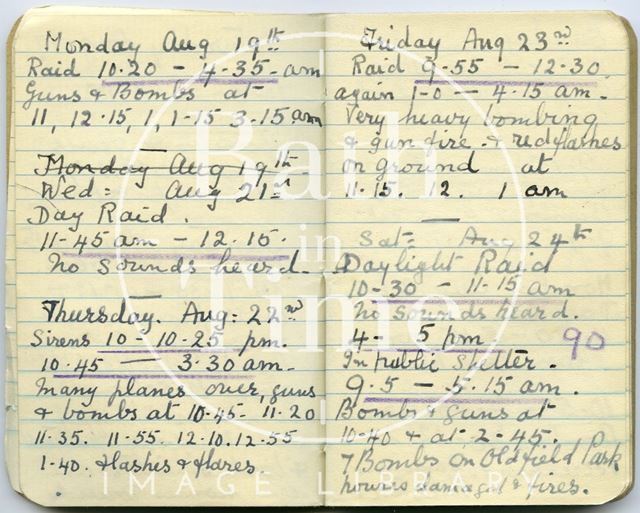 Monday Aug 19th
Raid 10.20 - 4.35 am
Guns & Bombs at
11, 12.15, 1, 1-15 3.15 am
Monday Aug 19th
Wed: Aug 21st
Day Raid.
11-45 am - 12.15.
No sounds heard.
Thursday. Aug: 22nd
Sirens 10 - 10-25 pm.
10.45 — 3.30 am.
Many planes over, guns
& bombs at 10.45- 11.20
11.35. 11.55. 12.10. 12.55
1-40. Flashes & flares.
Friday Aug 23rd
Raid 9.55 - 12.30.
again 1-0 - 4.15 am.
Very heavy bombing
& gun fire. & red flashes
on ground at
11.15. 12. 1 am
Sat: Aug 24th
Daylight Raid
10-30 - 11.15 am
No sounds heard.
4- 5 pm.
90
In public shelter.
9.5 - 5.15 am.
Bombs & guns at
10-40 & at 2-45.
7 Bombs on Oldfield Park
houses damaged & fires.
Bath
in
Time
IMAGE LIBRARY